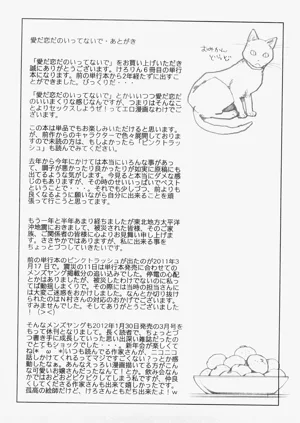 愛だ恋だのいってないで・あとがき
「愛だ恋だのいってないで」をお買い上げいただき
誠にありがとうございます。けろりん6冊目の単行
本になります。前の単行本から2年経たずに出すこ
とができました。びっくりだ・・・
「愛だ恋だのいってないで」とかいいつつ愛だ恋だ
のいいまくりな感じなんですが、つまりはそんなこ
とよりセックスしようぜ！ってエロ漫画なわけでご
ざいます。
この本は単品でもお楽しみいただけると思います。
が、前作からのキャラクターで色々展開しておりま
すので未読の方は、もしよかったら「ピンクトラッ
シュ」も読んでみてください。
去年から今年にかけては本当にいろんな事があっ
て、調子が悪かったり良かったりが如実に原稿にも
出てるような気がします。今見ると本当にダメな感
じのもありますが、その時のせいいっぱいでベスト
ということで・・・。それでも少しづつ、前より
良くなるように願いながら自分に出来ることを頑
張って行こうと思ってます。
もう一年と半年あまり経ちましたが東北地方太平洋
沖地震におきまして、被災された皆様、そのご家
族、ご関係者の皆様に心よりお見舞い申し上げま
す。ささやかではありますが、私に出来る事を
ちょっとづつしていきたいです。
前の単行本のピンクトラッシュが出たのが2011年3
月17日で、震災の11日は単行本発売に合わせての
メンズヤング掲載分の追い込みでした。停電の心配
とかしたりしながら、被災したわけでないのに私っ
てば動揺しまくりで、その際には当時の担当さんに
は大変ご迷惑をおかけしました。なんとか切り抜け
られたのはN村さんの対応のおかげでございます。
すみませんでした。そしてありがとうございまし
た！(><)
そんなメンズヤングも2012年1月30日発売の3月号を
もって休刊となりました。長く読者で、ちょっとづ
つ書き手に成長していった思い出深い雑誌だったの
でとてもショックでした・・・。新年会が楽しくて
ね(*´ω`*)いつも読んでる作家さんが、ニコニコ
話しかけてくれるってマジですごくない？っとか感動
したなぁ。あんなえっろい漫画描いてる方がこんな
可愛いお嬢さんだったなんて！とか。飲み会なんか
ではおどおどビクビクしてしまう私ですが、仲良
してくださる作家さんも出来て嬉しかったです。
孤高の絵師だけど、けろさんともだち出来たよ！w